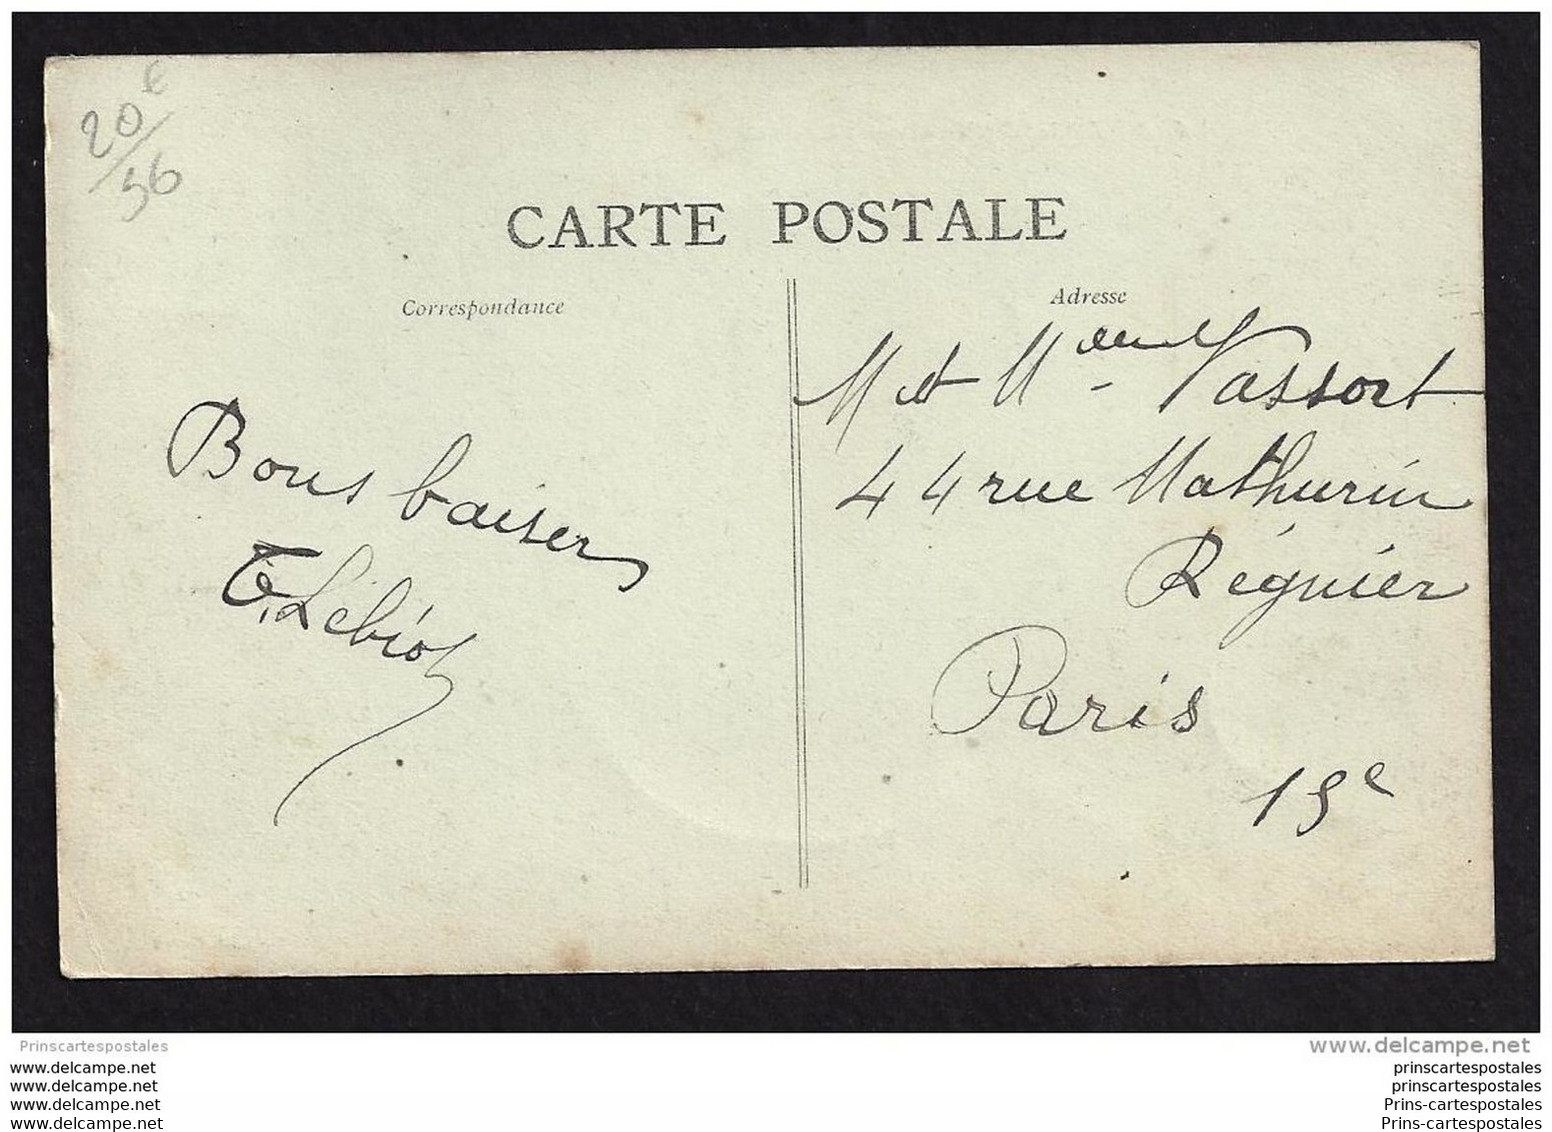 20€
56
CARTE POSTALE
Correspondance
Adresse
M et Mme Vassort
44 rue Mathurin
Régnier
Paris
15e
Bons baisers
Lebiot
Prinscartespostales
www.delcampe.net
www.delcampe.com
www.delcampe.net
www.delcampe.net
www.delcampe.com
prinscartespostales
prinscartespostales
Prins-cartespostales
Prins-cartespostales